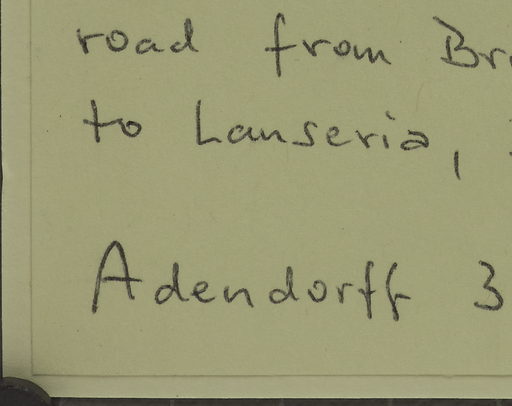 road from Br
to Lanseria,
Adendorff 3